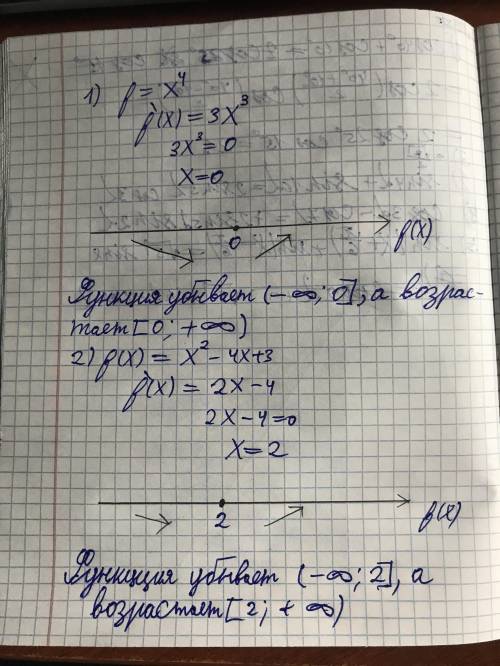 1) f = x⁴
f'(x) = 3x³
3x³ = 0
x = 0
0
f(x)
Функция убывает (-∞; 0], а возрас-
тает [0; +∞)
2) f(x) = x² - 4x + 3
f'(x) = 2x - 4
2x - 4 = 0
x = 2
2
f(x)
Функция убывает (-∞; 2], а
возрастает [2; +∞)